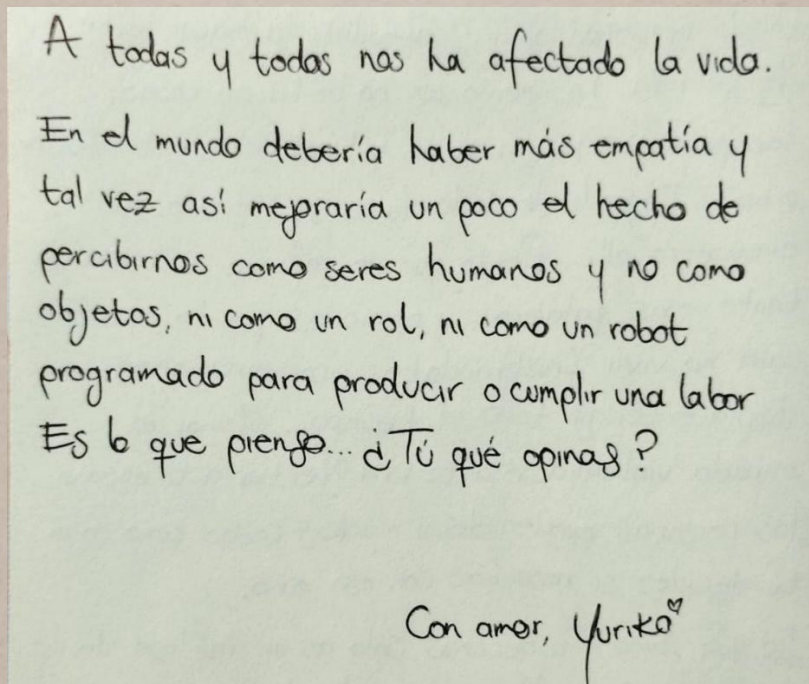 A todas y todos nos ha afectado la vida.
En el mundo debería haber más empatía y
tal vez así mejoraría un poco el hecho de
percibirnos como seres humanos y no como
objetos, ni como un rol, ni como un robot
programado para producir o cumplir una labor
Es lo que pienso... ¿Tú qué opinas?
Con amor, Yuriko